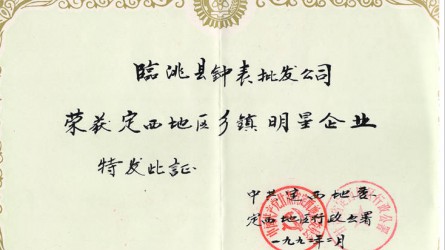 臨洮县钟表批发公司
荣获定西地区乡镇明星企业
特发此証
中共定西地委
定西地区行政公署
一九九二年二月